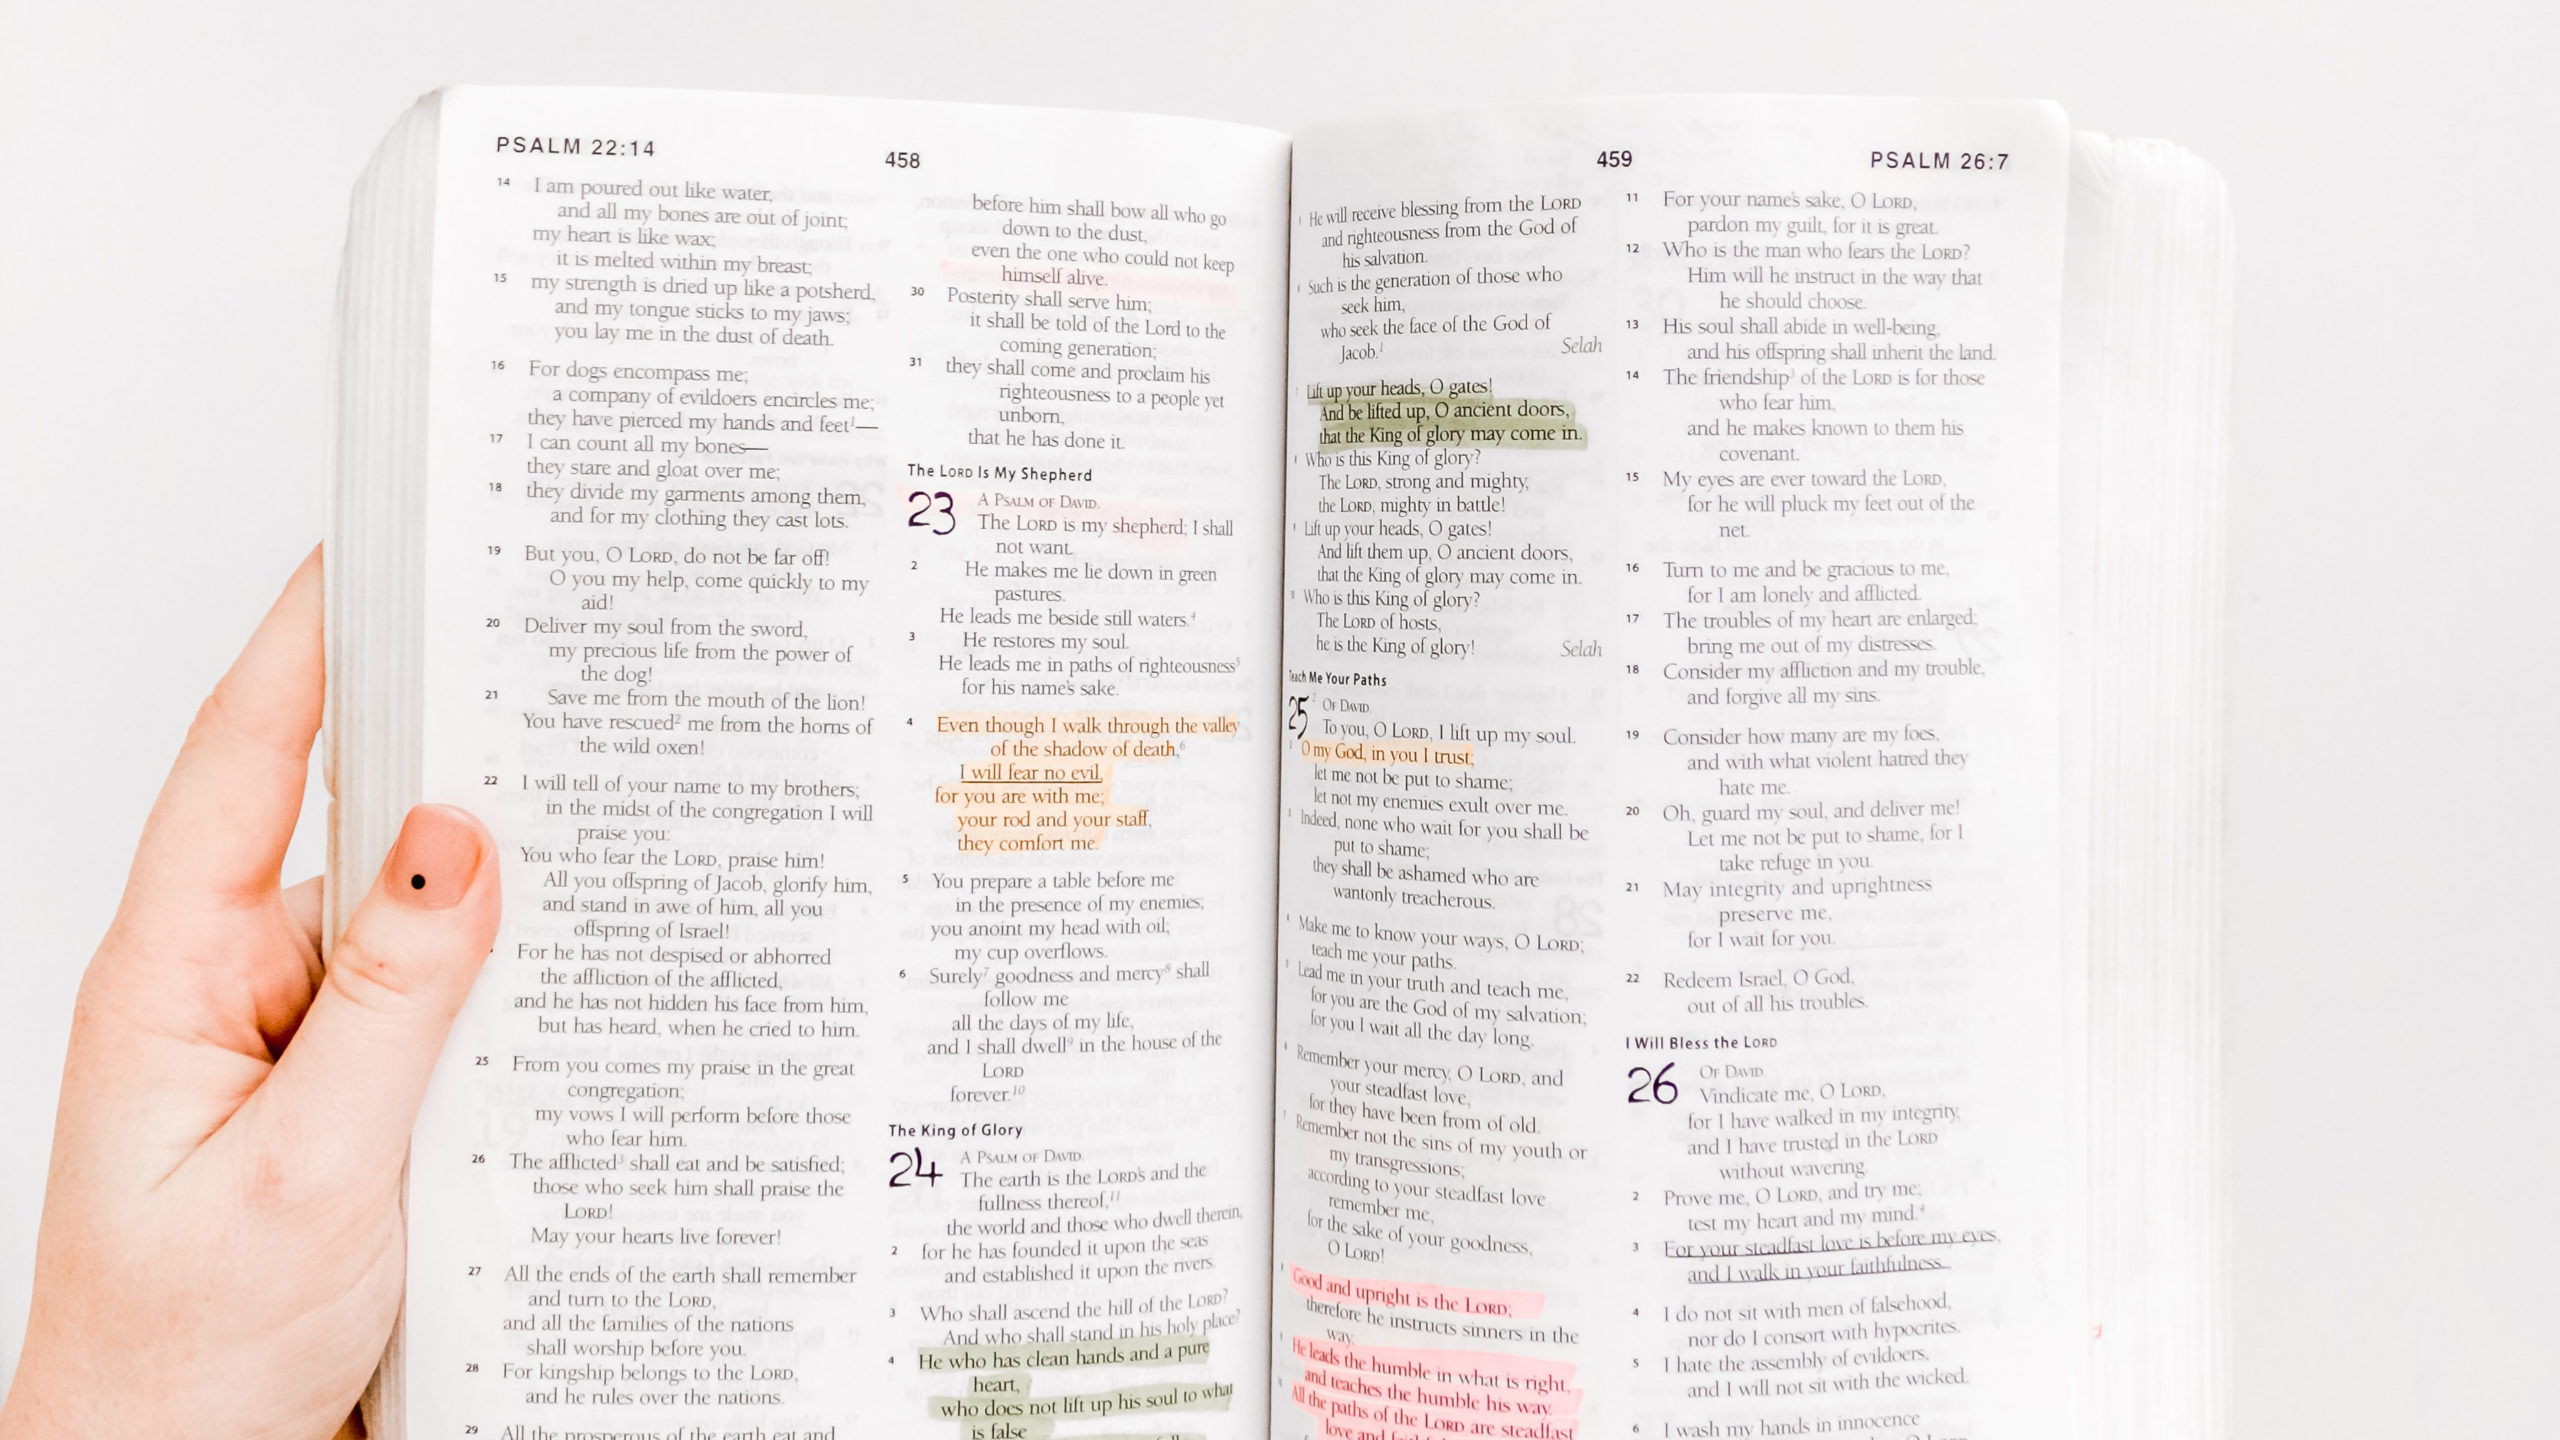 PSALM 22:14
458
14 I am poured out like water,
and all my bones are out of joint;
my heart is like wax;
it is melted within my breast;
15 my strength is dried up like a potsherd,
and my tongue sticks to my jaws;
you lay me in the dust of death.
16 For dogs encompass me;
a company of evildoers encircles me;
they have pierced my hands and feet¹—
17 I can count all my bones—
they stare and gloat over me;
18 they divide my garments among them,
and for my clothing they cast lots.
19 But you, O LORD, do not be far off!
O you my help, come quickly to my
aid!
20 Deliver my soul from the sword,
my precious life from the power of
the dog!
21 Save me from the mouth of the lion!
You have rescued² me from the horns of
the wild oxen!
22 I will tell of your name to my brothers;
in the midst of the congregation I will
praise you:
You who fear the LORD, praise him!
All you offspring of Jacob, glorify him,
and stand in awe of him, all you
offspring of Israel!
For he has not despised or abhorred
the affliction of the afflicted,
and he has not hidden his face from him,
but has heard, when he cried to him.
25 From you comes my praise in the great
congregation;
my vows I will perform before those
who fear him.
26 The afflicted³ shall eat and be satisfied;
those who seek him shall praise the
LORD!
May your hearts live forever!
27 All the ends of the earth shall remember
and turn to the LORD,
and all the families of the nations
shall worship before you.
28 For kingship belongs to the LORD,
and he rules over the nations.
29 All the prosperous of the earth eat and
before him shall bow all who go
down to the dust,
even the one who could not keep
himself alive.
30 Posterity shall serve him;
it shall be told of the Lord to the
coming generation;
31 they shall come and proclaim his
righteousness to a people yet
unborn,
that he has done it.
The LORD Is My Shepherd
23 A PSALM OF DAVID.
The LORD is my shepherd; I shall
not want.
2 He makes me lie down in green
pastures.
He leads me beside still waters.⁴
3 He restores my soul.
He leads me in paths of righteousness⁵
for his name's sake.
4 Even though I walk through the valley
of the shadow of death,⁶
I will fear no evil,
for you are with me;
your rod and your staff,
they comfort me.
5 You prepare a table before me
in the presence of my enemies;
you anoint my head with oil;
my cup overflows.
6 Surely⁷ goodness and mercy⁸ shall
follow me
all the days of my life,
and I shall dwell⁹ in the house of the
LORD
forever.¹⁰
The King of Glory
24 A PSALM OF DAVID.
The earth is the LORD's and the
fullness thereof,¹¹
the world and those who dwell therein,
2 for he has founded it upon the seas
and established it upon the rivers.
3 Who shall ascend the hill of the LORD?
And who shall stand in his holy place?
4 He who has clean hands and a pure
heart,
who does not lift up his soul to what
is false
459
PSALM 26:7
He will receive blessing from the LORD
and righteousness from the God of
his salvation.
Such is the generation of those who
seek him,
who seek the face of the God of
Jacob.¹ Selah
Lift up your heads, O gates!
And be lifted up, O ancient doors,
that the King of glory may come in.
Who is this King of glory?
The LORD, strong and mighty,
the LORD, mighty in battle!
Lift up your heads, O gates!
And lift them up, O ancient doors,
that the King of glory may come in.
Who is this King of glory?
The LORD of hosts,
he is the King of glory! Selah
Teach Me Your Paths
25 ² OF DAVID.
To you, O LORD, I lift up my soul.
O my God, in you I trust;
let me not be put to shame;
let not my enemies exult over me.
Indeed, none who wait for you shall be
put to shame;
they shall be ashamed who are
wantonly treacherous.
Make me to know your ways, O LORD;
teach me your paths.
Lead me in your truth and teach me,
for you are the God of my salvation;
for you I wait all the day long.
Remember your mercy, O LORD, and
your steadfast love,
for they have been from of old.
Remember not the sins of my youth or
my transgressions;
according to your steadfast love
remember me,
for the sake of your goodness,
O LORD!
Good and upright is the LORD;
therefore he instructs sinners in the
way.
He leads the humble in what is right,
and teaches the humble his way.
All the paths of the LORD are steadfast
love and
11 For your name's sake, O LORD,
pardon my guilt, for it is great.
12 Who is the man who fears the LORD?
Him will he instruct in the way that
he should choose.
13 His soul shall abide in well-being,
and his offspring shall inherit the land.
14 The friendship³ of the LORD is for those
who fear him,
and he makes known to them his
covenant.
15 My eyes are ever toward the LORD,
for he will pluck my feet out of the
net.
16 Turn to me and be gracious to me,
for I am lonely and afflicted.
17 The troubles of my heart are enlarged;
bring me out of my distresses.
18 Consider my affliction and my trouble,
and forgive all my sins.
19 Consider how many are my foes,
and with what violent hatred they
hate me.
20 Oh, guard my soul, and deliver me!
Let me not be put to shame, for I
take refuge in you.
21 May integrity and uprightness
preserve me,
for I wait for you.
22 Redeem Israel, O God,
out of all his troubles.
I Will Bless the LORD
26 OF DAVID.
Vindicate me, O LORD,
for I have walked in my integrity,
and I have trusted in the LORD
without wavering.
2 Prove me, O LORD, and try me;
test my heart and my mind.⁴
3 For your steadfast love is before my eyes,
and I walk in your faithfulness.
4 I do not sit with men of falsehood,
nor do I consort with hypocrites.
5 I hate the assembly of evildoers,
and I will not sit with the wicked.
6 I wash my hands in innocence